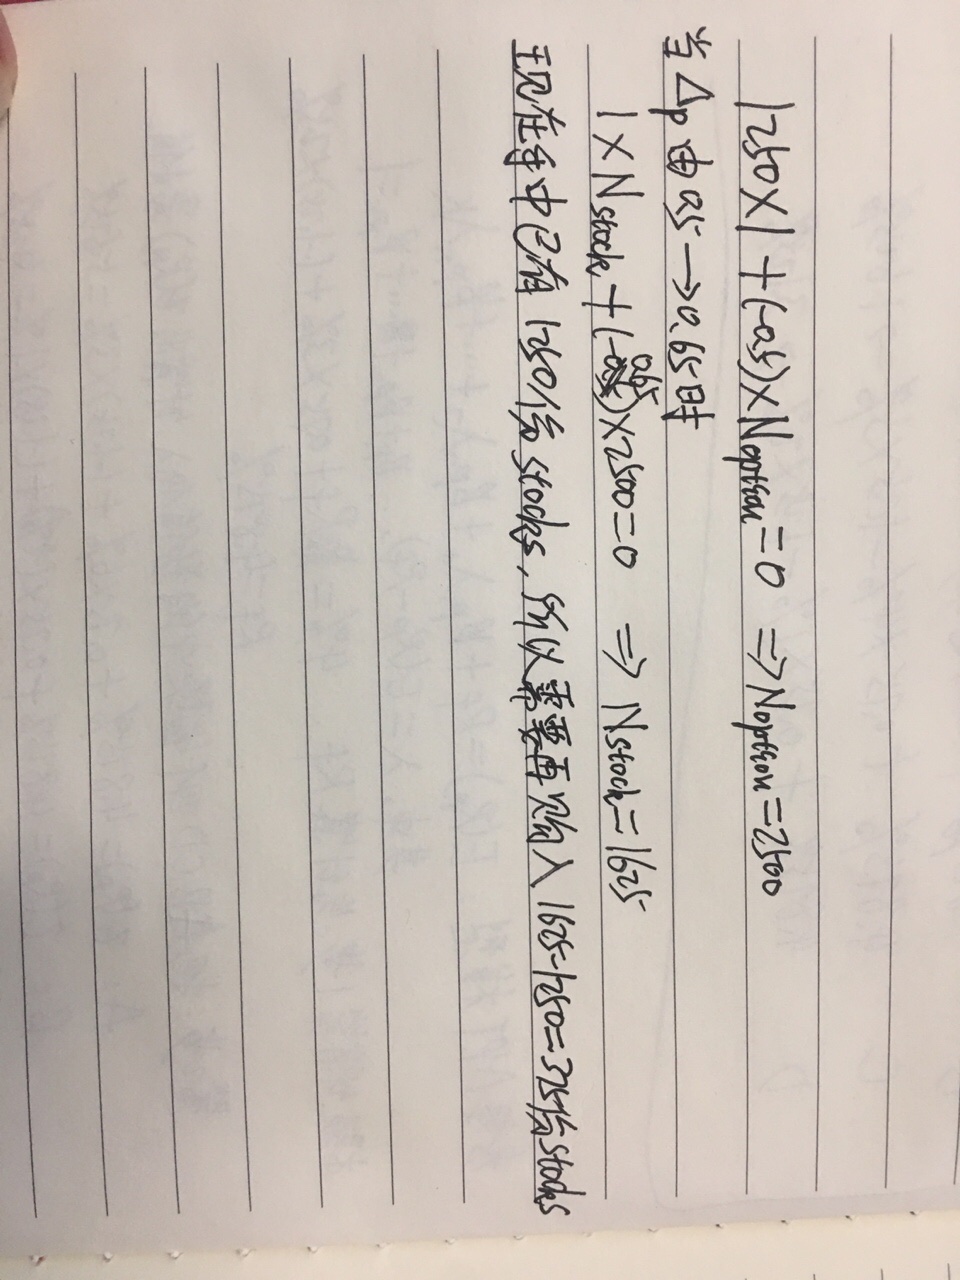 1250×1+(-0.5)×Noption=0 ⇒Noption=2500
当Δp由0.5→0.65时
1×Nstock+(-0.65)×2500=0 ⇒ Nstock=1625
现在手中已有1250份stocks,所以需要再购入1625-1250=325份stocks